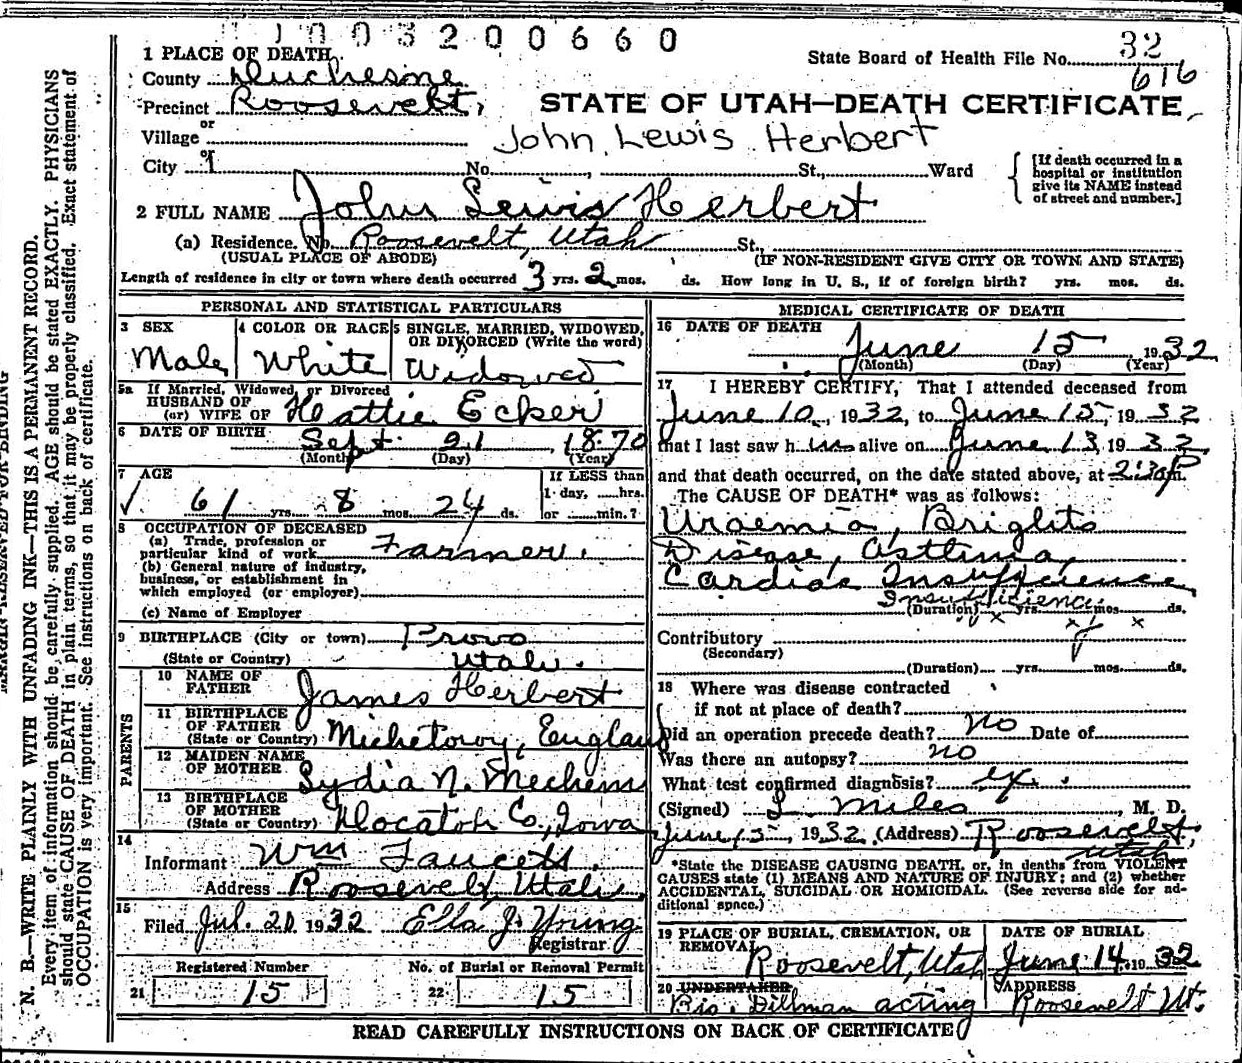 1003200660
1 PLACE OF DEATH
State Board of Health File No. 32
616
County Duchesne
Precinct Roosevelt,
STATE OF UTAH—DEATH CERTIFICATE
or
Village
John Lewis Herbert
or
City No. St., Ward
[If death occurred in a hospital or institution give its NAME instead of street and number.]
2 FULL NAME John Lewis Herbert
(a) Residence. No. Roosevelt, Utah St.,
(USUAL PLACE OF ABODE) (IF NON-RESIDENT GIVE CITY OR TOWN AND STATE)
Length of residence in city or town where death occurred 3 yrs. 2 mos. ds. How long in U. S., if of foreign birth? yrs. mos. ds.
PERSONAL AND STATISTICAL PARTICULARS
3 SEX
Male
4 COLOR OR RACE
White
5 SINGLE, MARRIED, WIDOWED,
OR DIVORCED (Write the word)
Widowed
5a If Married, Widowed, or Divorced
HUSBAND OF
(or) WIFE OF Hattie Ecker
6 DATE OF BIRTH Sept. 21 1870
(Month) (Day) (Year)
7 AGE
61 yrs. 8 mos. 24 ds.
If LESS than
1 day, hrs.
or min.?
8 OCCUPATION OF DECEASED
(a) Trade, profession or
particular kind of work Farmer.
(b) General nature of industry,
business, or establishment in
which employed (or employer)
(c) Name of Employer
9 BIRTHPLACE (City or town) Provo
(State or Country) Utah.
PARENTS
10 NAME OF
FATHER James Herbert
11 BIRTHPLACE
OF FATHER
(State or Country) England
12 MAIDEN NAME
OF MOTHER Lydia N. Mechem
13 BIRTHPLACE
OF MOTHER
(State or Country) Co., Iowa
14
Informant Wm Faucett.
Address Roosevelt, Utah
15
Filed Jul. 20 1932 Ella J. Young
Registrar
Registered Number
21 15
No. of Burial or Removal Permit
22 15
MEDICAL CERTIFICATE OF DEATH
16 DATE OF DEATH
June 15 1932
(Month) (Day) (Year)
17 I HEREBY CERTIFY, That I attended deceased from
June 10, 1932, to June 15, 1932
that I last saw him alive on June 13, 1932
and that death occurred, on the date stated above, at 2:30 P m.
The CAUSE OF DEATH* was as follows:
Uraemia, Brights
Disease, Asthma,
Cardiac Insufficience
Insufficiency
(Duration) yrs. mos. ds.
Contributory
(Secondary)
(Duration) yrs. mos. ds.
18 Where was disease contracted
if not at place of death?
Did an operation precede death? no Date of
Was there an autopsy? no
What test confirmed diagnosis?
(Signed) L. Miles, M. D.
June 15, 1932. (Address) Roosevelt,
Utah
*State the DISEASE CAUSING DEATH, or, in deaths from VIOLENT
CAUSES state (1) MEANS AND NATURE OF INJURY; and (2) whether
ACCIDENTAL, SUICIDAL OR HOMICIDAL. (See reverse side for ad-
ditional space.)
19 PLACE OF BURIAL, CREMATION, OR
REMOVAL
Roosevelt, Utah
DATE OF BURIAL
June 14 1932
20 UNDERTAKER
Bis. Dillman acting
ADDRESS
Roosevelt Ut.
READ CAREFULLY INSTRUCTIONS ON BACK OF CERTIFICATE
N. B.—WRITE PLAINLY WITH UNFADING INK—THIS IS A PERMANENT RECORD.
Every item of information should be carefully supplied. AGE should be stated EXACTLY. PHYSICIANS
should state CAUSE OF DEATH in plain terms, so that it may be properly classified. Exact statement of
OCCUPATION is very important. See instructions on back of certificate.